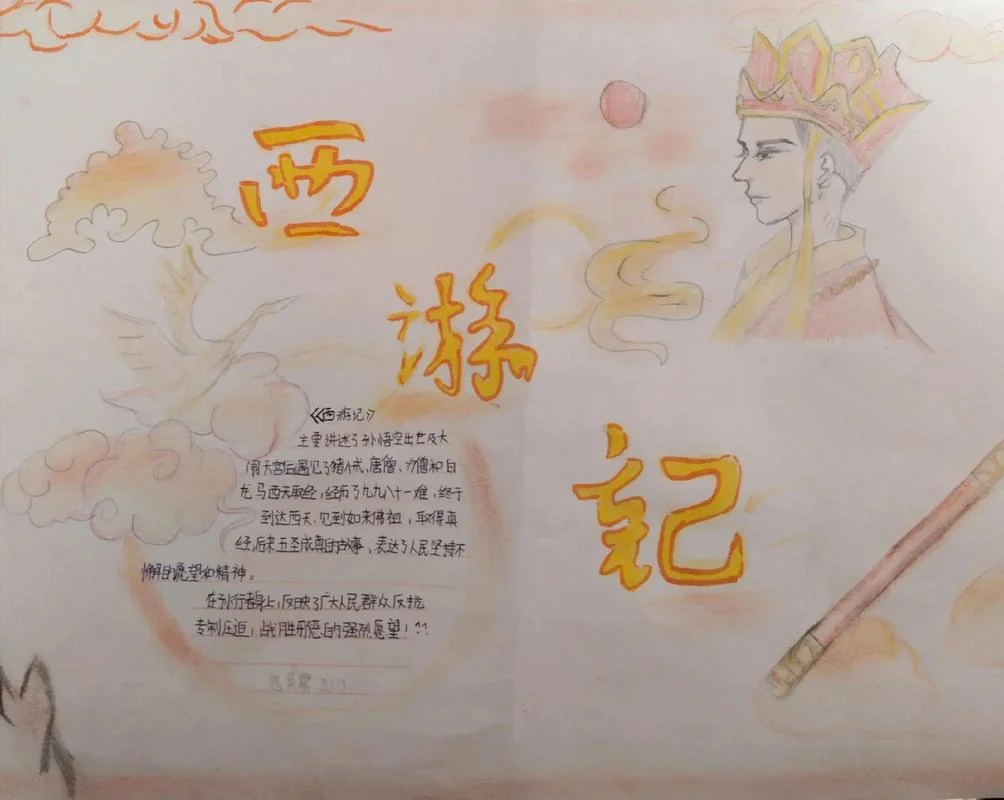 西
游
记
《西游记》
主要讲述了孙悟空出世及大
闹天宫后遇见了猪八戒、唐僧、沙僧和白
龙马西天取经，经历了九九八十一难，终于
到达西天，见到如来佛祖，取得真
经，后来五圣成真的故事、表达了人民坚持不
懈的愿望和精神。
在孙行者身上，反映了广大人民群众反抗
专制压迫，战胜邪恶的强烈愿望！